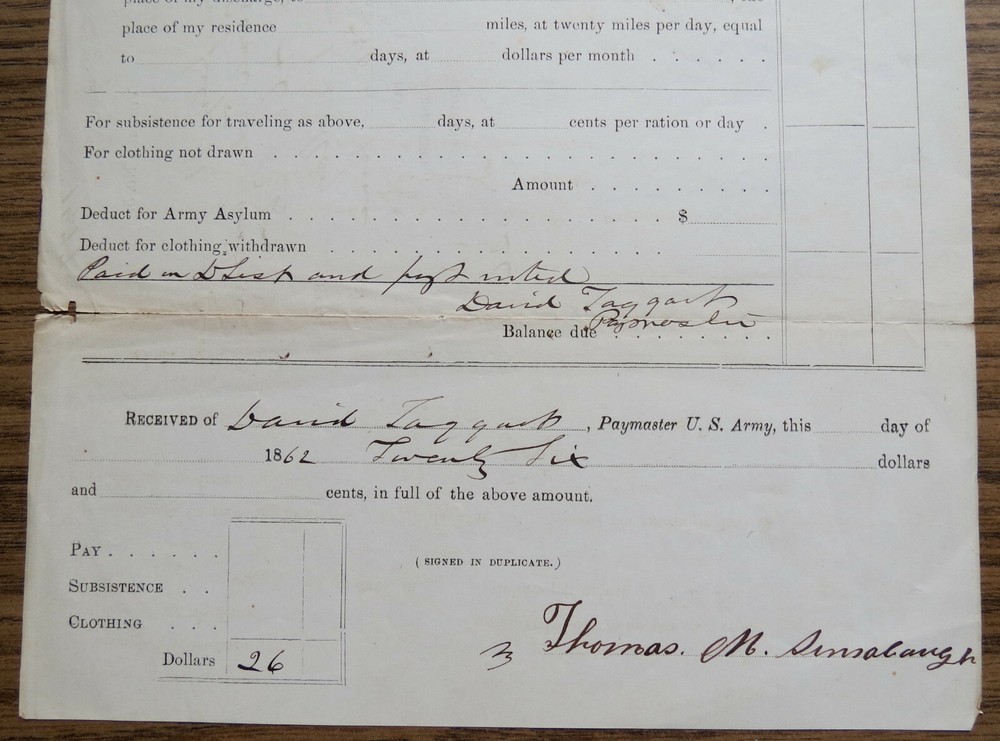 place of my discharge, to , the
place of my residence miles, at twenty miles per day, equal
to days, at dollars per month . . . . . .
For subsistence for traveling as above, days, at cents per ration or day .
For clothing not drawn . . . . . . . . . . . . . . . . . . . .
Amount . . . . . . . .
Deduct for Army Asylum . . . . . . . . . . . . . . . $
Deduct for clothing withdrawn . . . . . . . . . . . . .
Paid on and noted
David Taggart
Paymaster
Balance due . . . . . . . .
RECEIVED of David Taggart, Paymaster U. S. Army, this day of
1862 Twenty Six dollars
and cents, in full of the above amount.
PAY . . . . . .
(SIGNED IN DUPLICATE.)
SUBSISTENCE . .
CLOTHING . . .
Thomas. M. Sinsabaugh
Dollars 26